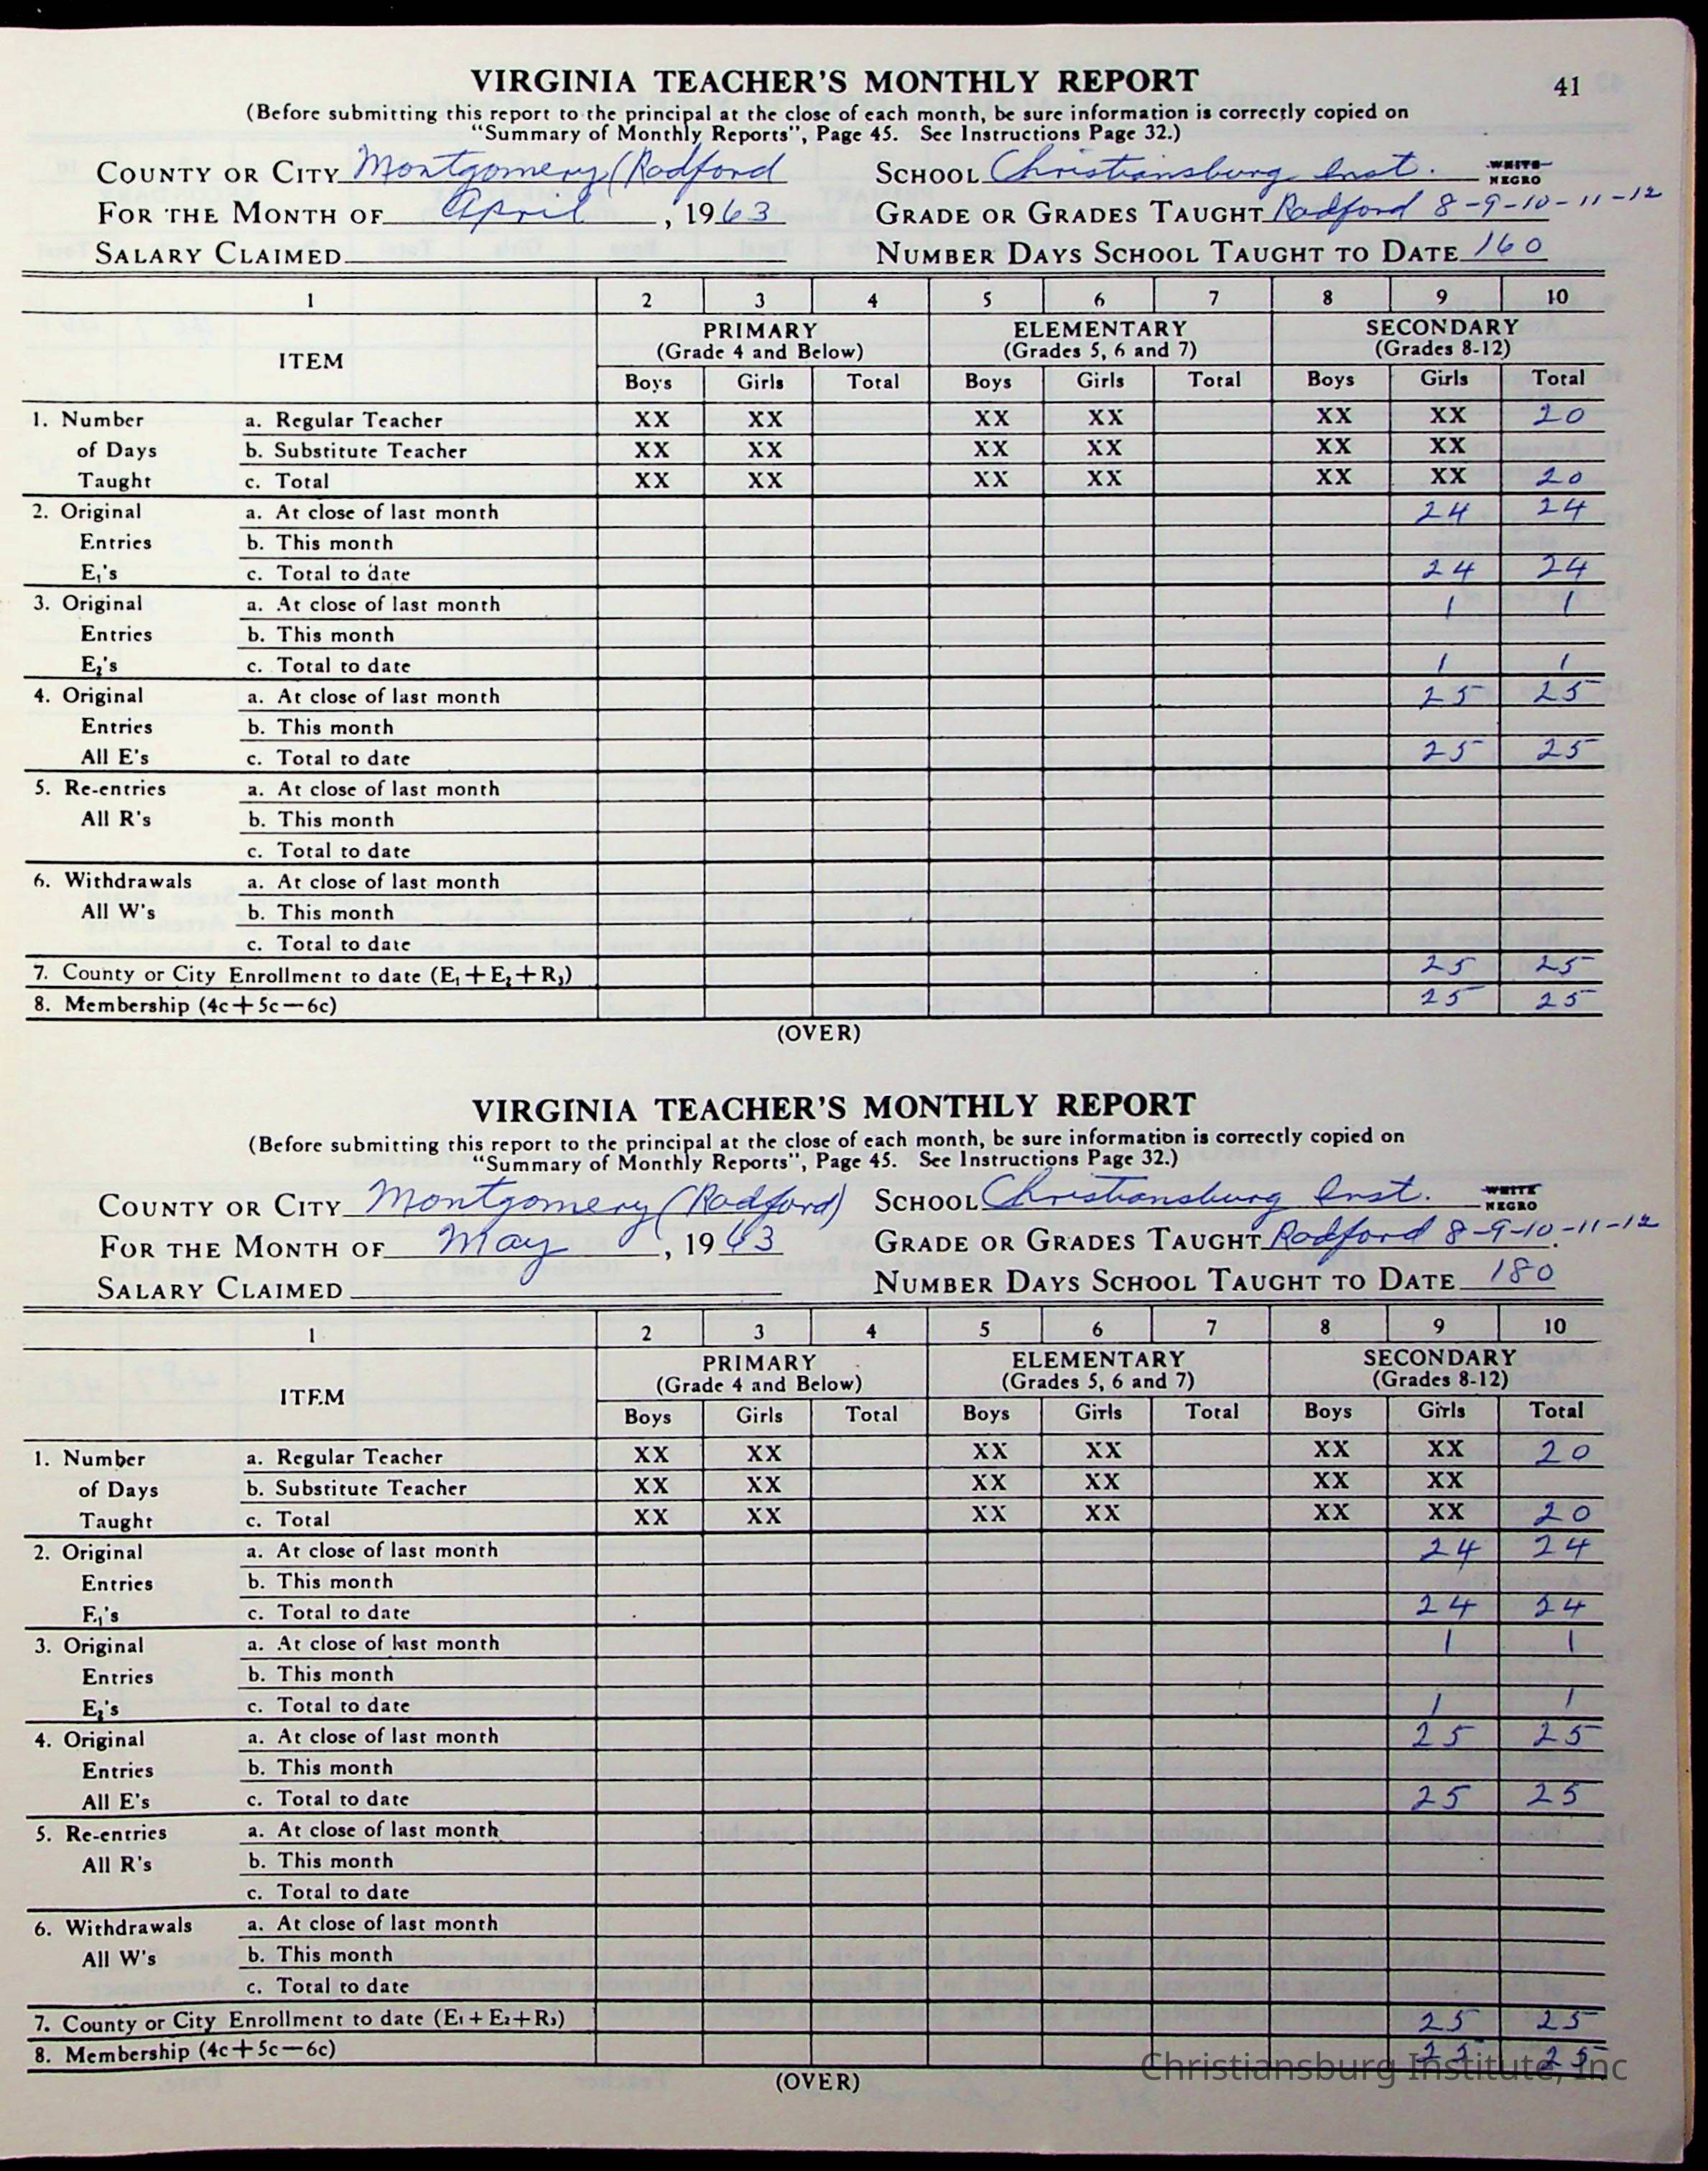 VIRGINIA TEACHER'S MONTHLY REPORT 41
(Before submitting this report to the principal at the close of each month, be sure information is correctly copied on
"Summary of Monthly Reports", Page 45. See Instructions Page 32.)
COUNTY OR CITY Montgomery (Radford SCHOOL Christiansburg Inst. WHITE NEGRO
FOR THE MONTH OF April, 1963 GRADE OR GRADES TAUGHT Radford 8-9-10-11-12
SALARY CLAIMED NUMBER DAYS SCHOOL TAUGHT TO DATE 160
1 2 3 4 5 6 7 8 9 10
ITEM PRIMARY ELEMENTARY SECONDARY
(Grade 4 and Below) (Grades 5, 6 and 7) (Grades 8-12)
Boys Girls Total Boys Girls Total Boys Girls Total
1. Number a. Regular Teacher XX XX XX XX XX XX 20
of Days b. Substitute Teacher XX XX XX XX XX XX
Taught c. Total XX XX XX XX XX XX 20
2. Original a. At close of last month 24 24
Entries b. This month
E₁'s c. Total to date 24 24
3. Original a. At close of last month 1 1
Entries b. This month
E₂'s c. Total to date 1 1
4. Original a. At close of last month 25 25
Entries b. This month
All E's c. Total to date 25 25
5. Re-entries a. At close of last month
All R's b. This month
c. Total to date
6. Withdrawals a. At close of last month
All W's b. This month
c. Total to date
7. County or City Enrollment to date (E₁+E₂+R₃) 25 25
8. Membership (4c+5c−6c) 25 25
(OVER)
VIRGINIA TEACHER'S MONTHLY REPORT
(Before submitting this report to the principal at the close of each month, be sure information is correctly copied on
"Summary of Monthly Reports", Page 45. See Instructions Page 32.)
COUNTY OR CITY Montgomery (Radford) SCHOOL Christiansburg Inst. WHITE NEGRO
FOR THE MONTH OF May, 1963 GRADE OR GRADES TAUGHT Radford 8-9-10-11-12
SALARY CLAIMED NUMBER DAYS SCHOOL TAUGHT TO DATE 180
1 2 3 4 5 6 7 8 9 10
ITEM PRIMARY ELEMENTARY SECONDARY
(Grade 4 and Below) (Grades 5, 6 and 7) (Grades 8-12)
Boys Girls Total Boys Girls Total Boys Girls Total
1. Number a. Regular Teacher XX XX XX XX XX XX 20
of Days b. Substitute Teacher XX XX XX XX XX XX
Taught c. Total XX XX XX XX XX XX 20
2. Original a. At close of last month 24 24
Entries b. This month
E₁'s c. Total to date 24 24
3. Original a. At close of last month 1 1
Entries b. This month
E₂'s c. Total to date 1 1
4. Original a. At close of last month 25 25
Entries b. This month
All E's c. Total to date 25 25
5. Re-entries a. At close of last month
All R's b. This month
c. Total to date
6. Withdrawals a. At close of last month
All W's b. This month
c. Total to date
7. County or City Enrollment to date (E₁+E₂+R₃) 25 25
8. Membership (4c+5c−6c) 25 25
Christiansburg Institute, Inc
(OVER)